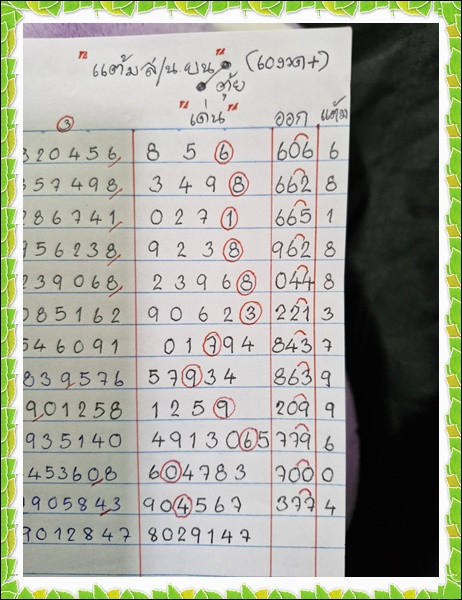 "แต้ม ส/น.ยน" (เองวด+)
ตุ้ย
③ "เด่น" ออก แต้ม
320456 8 5 6 606 6
357498 3 4 9 8 662 8
286741 0 2 7 1 665 1
956238 9 2 3 8 962 8
239068 2 3 9 6 8 044 8
085162 9 0 6 2 3 221 3
546091 0 1 7 9 4 843 7
839576 5 7 9 3 4 863 9
901258 1 2 5 9 209 9
935140 4 9 1 3 0 6 5 779 6
453608 6 0 4 7 8 3 700 0
905843 9 0 4 5 6 7 377 4
9012847 8029147